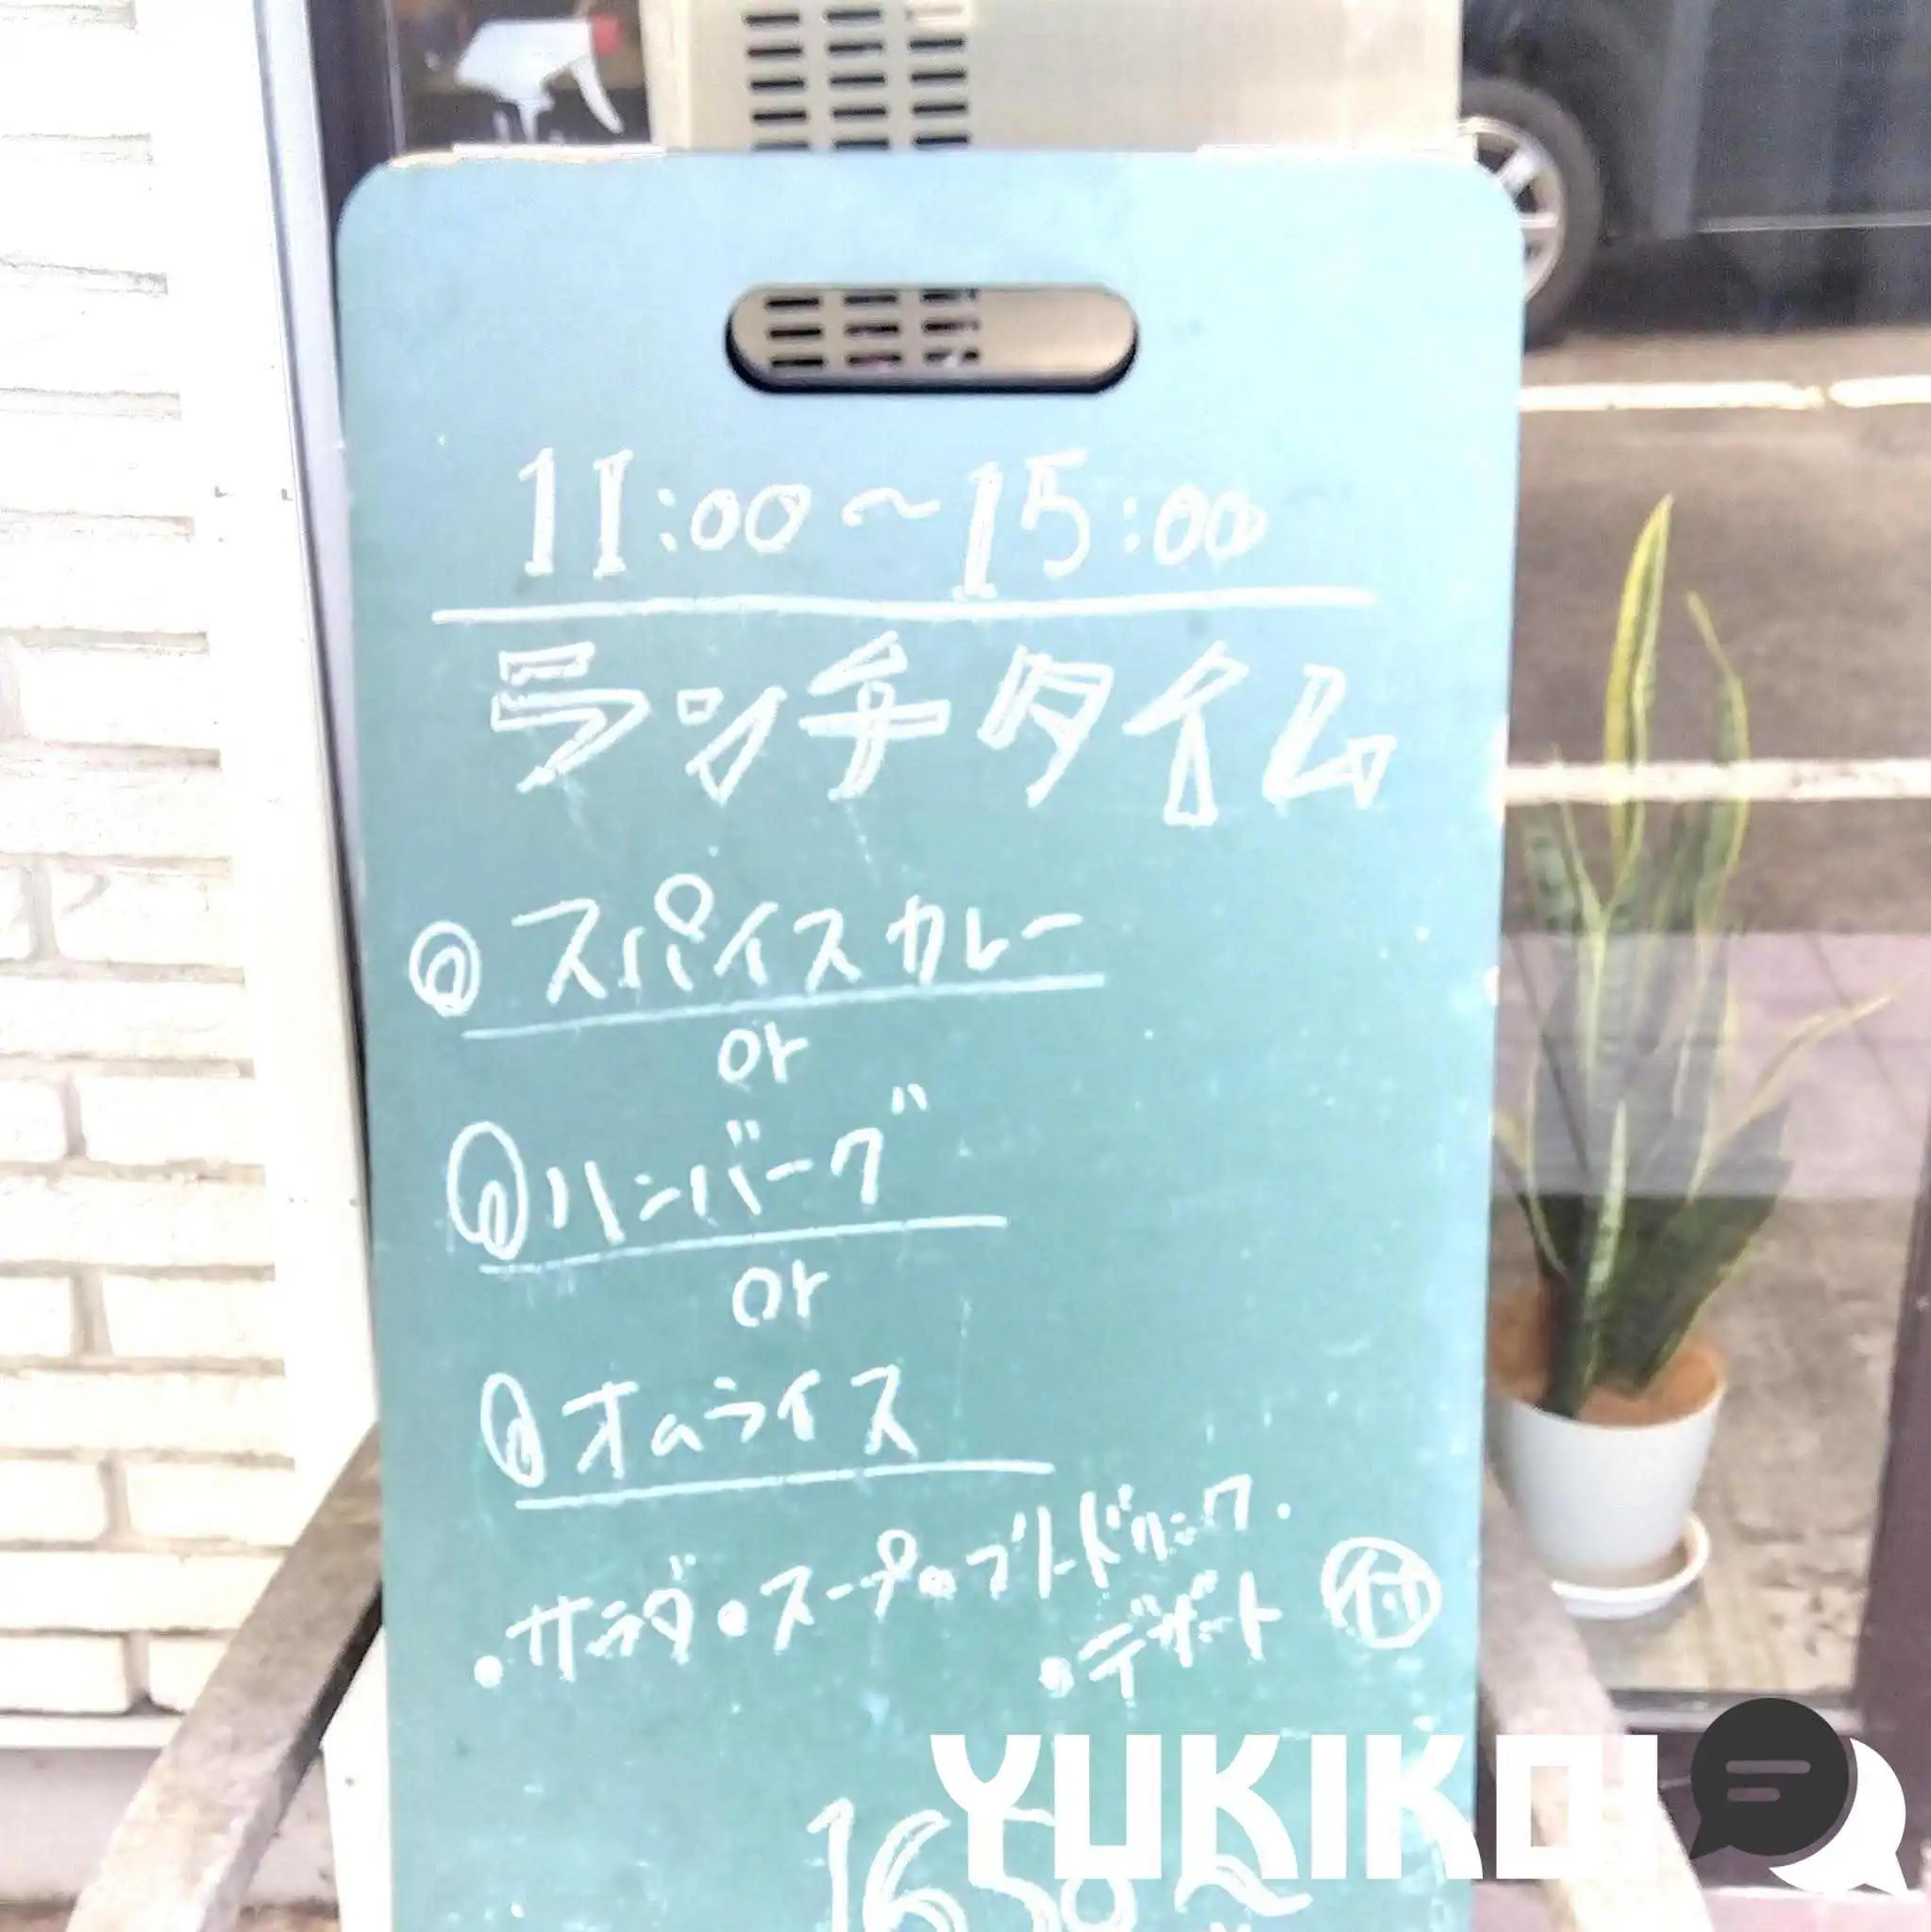 11:00～15:00
ランチタイム
スパイスカレー
or
ハンバーグ
or
オムライス
・サラダ・スープ・フリードリンク・
・デザート 付
1650～
YUKIKOI